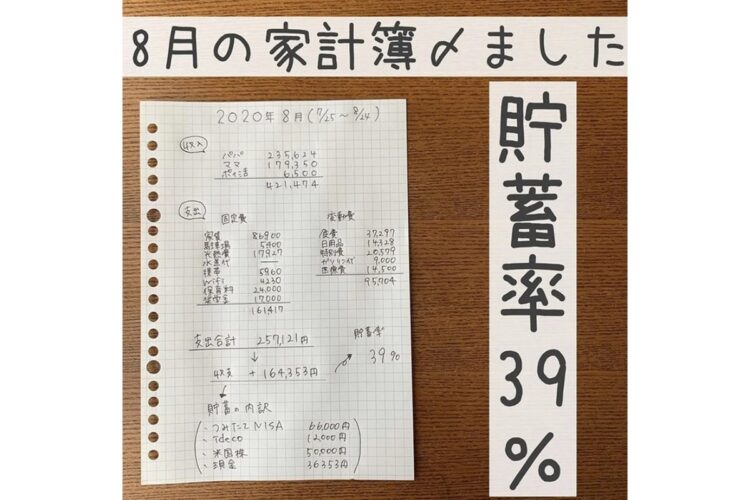 8月の家計簿〆ました
貯蓄率39%
2020年8月(7/25～8/24)
収入
パパ 235,624
ママ 179,350
ポイ活 6,500
421,474
支出
固定費
家賃 86900
駐車場 5400
光熱費 17927
水道代 ―
携帯 5960
WiFi 4230
保育料 24,000
奨学金 17,000
161,417
変動費
食費 37,297
日用品 14,328
特別費 20,579
ガソリン代 9,000
医療費 14,500
95,704
支出合計 257,121円
↓
収支 +164,353円
貯蓄率
39%
貯蓄の内訳
・つみたてNISA 66,000円
・iDeco 12,000円
・米国株 50,000円
・現金 36353円